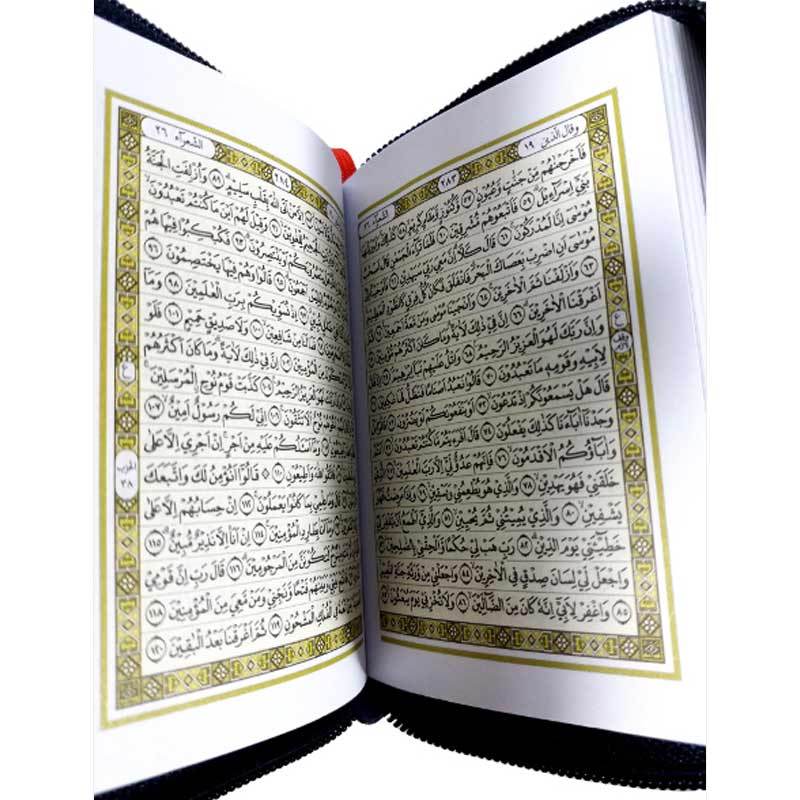 وقال الذين ١٩
٢٨٣
الشعرآء ٢٦
فَأَخْرَجْنٰهُمْ مِّنْ جَنّٰتٍ وَّعُيُوْنٍ ٥٧ وَّكُنُوْزٍ وَّمَقَامٍ كَرِيْمٍ ٥٨ كَذٰلِكَ
بَنِيْٓ اِسْرَآءِيْلَ ٥٩ فَاَتْبَعُوْهُمْ مُّشْرِقِيْنَ ٦٠ فَلَمَّا تَرَآءَ الْجَمْعٰنِ قَالَ اَصْحٰبُ
مُوْسٰٓى اِنَّا لَمُدْرَكُوْنَ ٦١ قَالَ كَلَّا اِنَّ مَعِيَ رَبِّيْ سَيَهْدِيْنِ ٦٢ فَاَوْحَيْنَآ اِلٰى
مُوْسٰٓى اَنِ اضْرِبْ بِّعَصَاكَ الْبَحْرَ فَانْفَلَقَ فَكَانَ كُلُّ فِرْقٍ كَالطَّوْدِ الْعَظِيْمِ
٦٣ وَاَزْلَفْنَا ثَمَّ الْاٰخَرِيْنَ ٦٤ وَاَنْجَيْنَا مُوْسٰى وَمَنْ مَّعَهٗٓ اَجْمَعِيْنَ ٦٥ ثُمَّ
اَغْرَقْنَا الْاٰخَرِيْنَ ٦٦ اِنَّ فِيْ ذٰلِكَ لَاٰيَةً وَمَا كَانَ اَكْثَرُهُمْ مُّؤْمِنِيْنَ ٦٧
وَاِنَّ رَبَّكَ لَهُوَ الْعَزِيْزُ الرَّحِيْمُ ٦٨ وَاتْلُ عَلَيْهِمْ نَبَاَ اِبْرٰهِيْمَ ٦٩ اِذْ قَالَ
لِاَبِيْهِ وَقَوْمِهٖ مَا تَعْبُدُوْنَ ٧٠ قَالُوْا نَعْبُدُ اَصْنَامًا فَنَظَلُّ لَهَا عٰكِفِيْنَ ٧١
قَالَ هَلْ يَسْمَعُوْنَكُمْ اِذْ تَدْعُوْنَ ٧٢ اَوْ يَنْفَعُوْنَكُمْ اَوْ يَضُرُّوْنَ ٧٣ قَالُوْا بَلْ
وَجَدْنَآ اٰبَآءَنَا كَذٰلِكَ يَفْعَلُوْنَ ٧٤ قَالَ اَفَرَءَيْتُمْ مَّا كُنْتُمْ تَعْبُدُوْنَ ٧٥ اَنْتُمْ
وَاٰبَآؤُكُمُ الْاَقْدَمُوْنَ ٧٦ فَاِنَّهُمْ عَدُوٌّ لِّيْٓ اِلَّا رَبَّ الْعٰلَمِيْنَ ٧٧ الَّذِيْ
خَلَقَنِيْ فَهُوَ يَهْدِيْنِ ٧٨ وَالَّذِيْ هُوَ يُطْعِمُنِيْ وَيَسْقِيْنِ ٧٩ وَاِذَا مَرِضْتُ فَهُوَ
يَشْفِيْنِ ٨٠ وَالَّذِيْ يُمِيْتُنِيْ ثُمَّ يُحْيِيْنِ ٨١ وَالَّذِيْٓ اَطْمَعُ اَنْ يَّغْفِرَ لِيْ
خَطِيْٓـَٔتِيْ يَوْمَ الدِّيْنِ ٨٢ رَبِّ هَبْ لِيْ حُكْمًا وَّاَلْحِقْنِيْ بِالصّٰلِحِيْنَ ٨٣
وَاجْعَلْ لِّيْ لِسَانَ صِدْقٍ فِى الْاٰخِرِيْنَ ٨٤ وَاجْعَلْنِيْ مِنْ وَّرَثَةِ جَنَّةِ النَّعِيْمِ
٨٥ وَاغْفِرْ لِاَبِيْٓ اِنَّهٗ كَانَ مِنَ الضَّآلِّيْنَ ٨٦ وَلَا تُخْزِنِيْ يَوْمَ يُبْعَثُوْنَ ٨٧
ع
٢٨٤
الشعرآء ٢٦
اِلَّا مَنْ اَتَى اللّٰهَ بِقَلْبٍ سَلِيْمٍ ٨٩ وَاُزْلِفَتِ الْجَنَّةُ
الْجَحِيْمُ لِلْغٰوِيْنَ ٩١ وَقِيْلَ لَهُمْ اَيْنَ مَا كُنْتُمْ تَعْبُدُوْنَ
يَنْصُرُوْنَكُمْ اَوْ يَنْتَصِرُوْنَ ٩٣ فَكُبْكِبُوْا فِيْهَا هُمْ
اَجْمَعُوْنَ ٩٥ قَالُوْا وَهُمْ فِيْهَا يَخْتَصِمُوْنَ ٩٦
اِذْ نُسَوِّيْكُمْ بِرَبِّ الْعٰلَمِيْنَ ٩٨ وَمَآ
فَمَا لَنَا مِنْ شَافِعِيْنَ ١٠٠ وَلَا صَدِيْقٍ حَمِيْمٍ ١٠١ فَلَوْ
الْمُؤْمِنِيْنَ ١٠٢ اِنَّ فِيْ ذٰلِكَ لَاٰيَةً وَمَا كَانَ اَكْثَرُهُمْ
لَهُوَ الْعَزِيْزُ الرَّحِيْمُ ١٠٤ كَذَّبَتْ قَوْمُ نُوْحِ الْمُرْسَلِيْنَ
نُوْحٌ اَلَا تَتَّقُوْنَ ١٠٦ اِنِّيْ لَكُمْ رَسُوْلٌ اَمِيْنٌ ١٠٧
وَمَآ اَسْـَٔلُكُمْ عَلَيْهِ مِنْ اَجْرٍ اِنْ اَجْرِيَ اِلَّا عَلٰى
فَاتَّقُوا اللّٰهَ وَاَطِيْعُوْنِ ١١٠ قَالُوْٓا اَنُؤْمِنُ لَكَ وَاتَّبَعَكَ
وَمَا عِلْمِيْ بِمَا كَانُوْا يَعْمَلُوْنَ ١١٢ اِنْ حِسَابُهُمْ اِلَّا عَلٰى
وَمَآ اَنَا بِطَارِدِ الْمُؤْمِنِيْنَ ١١٤ اِنْ اَنَا اِلَّا نَذِيْرٌ مُّبِيْنٌ ١١٥
لَتَكُوْنَنَّ مِنَ الْمَرْجُوْمِيْنَ ١١٦ قَالَ رَبِّ اِنَّ قَوْمِيْ
بَيْنِيْ وَبَيْنَهُمْ فَتْحًا وَّنَجِّنِيْ وَمَنْ مَّعِيَ مِنَ الْمُؤْمِنِيْنَ ١١٨
فِى الْفُلْكِ الْمَشْحُوْنِ ١١٩ ثُمَّ اَغْرَقْنَا بَعْدُ الْبٰقِيْنَ ١٢٠
ع
الحزب
٣٨